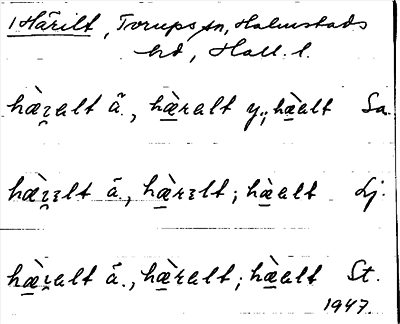 1 Härilt, Torups sn, Halmstads
hd, Hall. l.
hæ̀ɪ̯alt ä., hæ̀ralt y.; hæ̀alt Sa.
hæ̀ɪ̯ɪlt ä., hæ̀rɪlt; hæ̀alt Lj.
hæ̀ɪ̯alt ä., hæ̀ralt; hæ̀alt St.
1947.